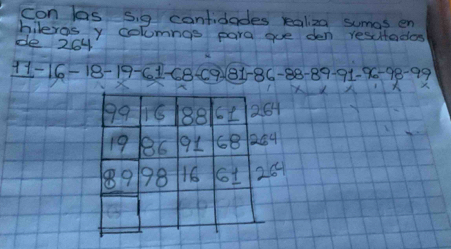 con las sig cantidades realiza sumas en
hileras y columnas para que den resultados
de 264
11-16-18-19-61-68-69-81-86-88-89-91-96-98-99
99 16 88 61 264
19 86 91 68 264
89 98 16 61 264